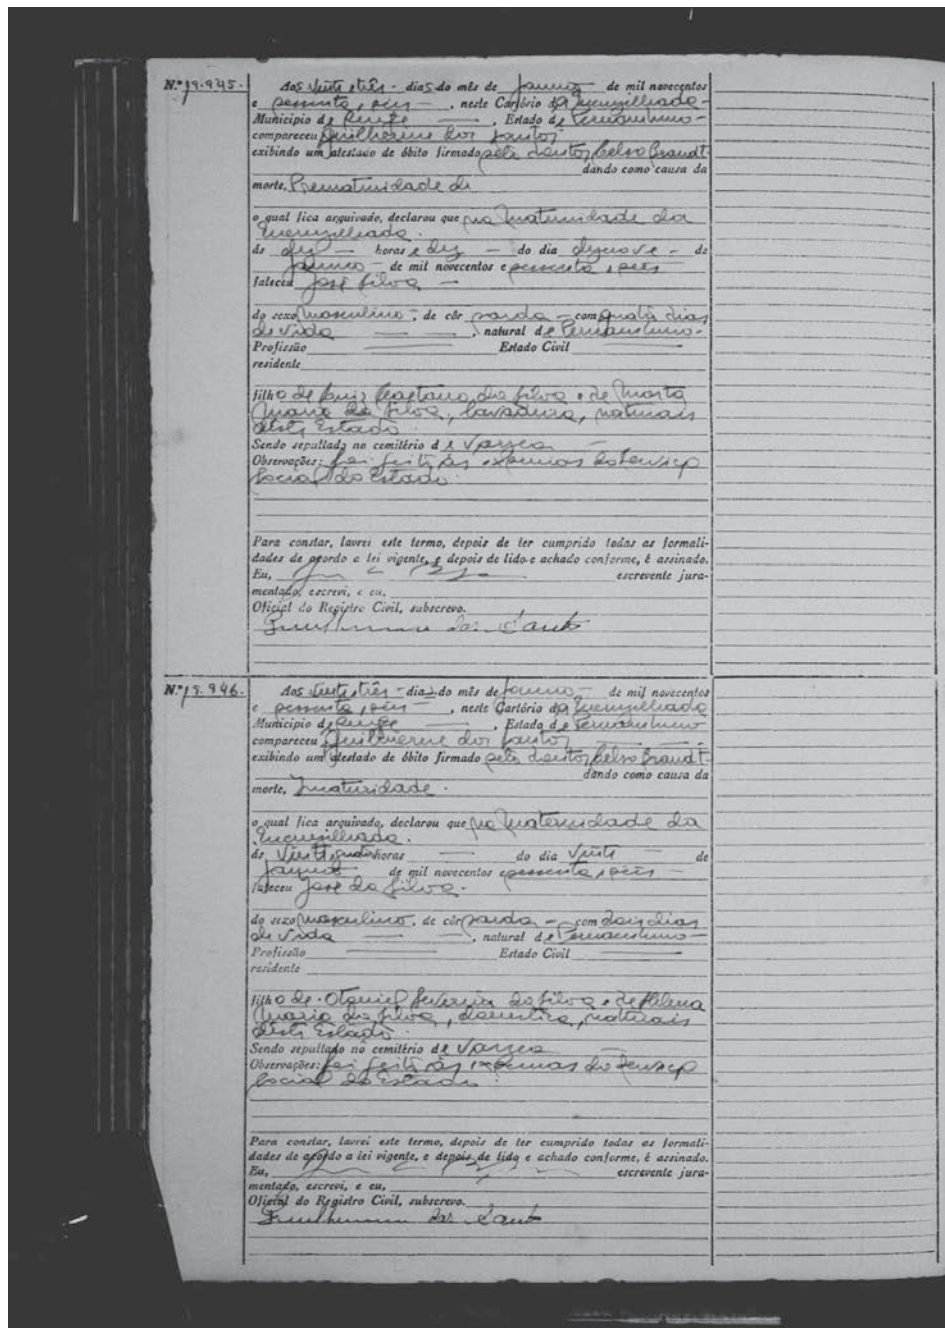 N.º 19.945. Aos vinte e três - dias do mês de janeiro - de mil novecentos
e sessenta e seis -, neste Cartório da Encruzilhada -
Municipio de Recife, Estado de Pernambuco -
compareceu Guilherme dos Santos
exibindo um atestado de óbito firmado pelo doutor Celso Brandt
dando como causa da
morte, Prematuridade
o qual fica arquivado, declarou que na Maternidade da
Encruzilhada.
ás dez - horas e dez - do dia dezenove - de
janeiro - de mil novecentos e sessenta e seis
faleceu José Silva -
do sexo masculino -, de côr parda - com quatro dias
de vida, natural de Pernambuco -
Profissão Estado Civil
residente
filho de Luiz Caetano da Silva e de Marta
Maria da Silva, naturais
deste Estado.
Sendo sepultado no cemitério de Varzea -
Observações: foi feito às expensas do Serviço
Social do Estado.
Para constar, lavrei este termo, depois de ter cumprido todas as formali-
dades de acordo a lei vigente, e depois de lido e achado conforme, é assinado.
Eu, escrevente jura-
mentado, escrevi, e eu,
Oficial do Registro Civil, subscrevo.
Guilherme dos Santos
N.º 946. Aos vinte e três - dias do mês de janeiro - de mil novecentos
e sessenta e seis -, neste Cartório da Encruzilhada
Municipio de Recife, Estado de Pernambuco
compareceu Guilherme dos Santos
exibindo um atestado de óbito firmado pelo doutor Celso Brandt -
dando como causa da
morte, Imaturidade.
o qual fica arquivado, declarou que na Maternidade da
Encruzilhada.
ás vinte e quatro horas do dia vinte - de
janeiro de mil novecentos e sessenta e seis -
faleceu José da Silva.
do sexo masculino, de côr parda - com dois dias
de vida, natural de Pernambuco -
Profissão Estado Civil
residente
filho de Otoniel da Silva e de Helena
Maria da Silva, domestica, naturais
deste Estado.
Sendo sepultado no cemitério de Varzea
Observações: foi feito às expensas do Serviço
Social do Estado.
Para constar, lavrei este termo, depois de ter cumprido todas as formali-
dades de acôrdo a lei vigente, e depois de lido e achado conforme, é assinado.
Eu, escrevente jura-
mentado, escrevi, e eu,
Oficial do Registro Civil, subscrevo.
Guilherme dos Santos